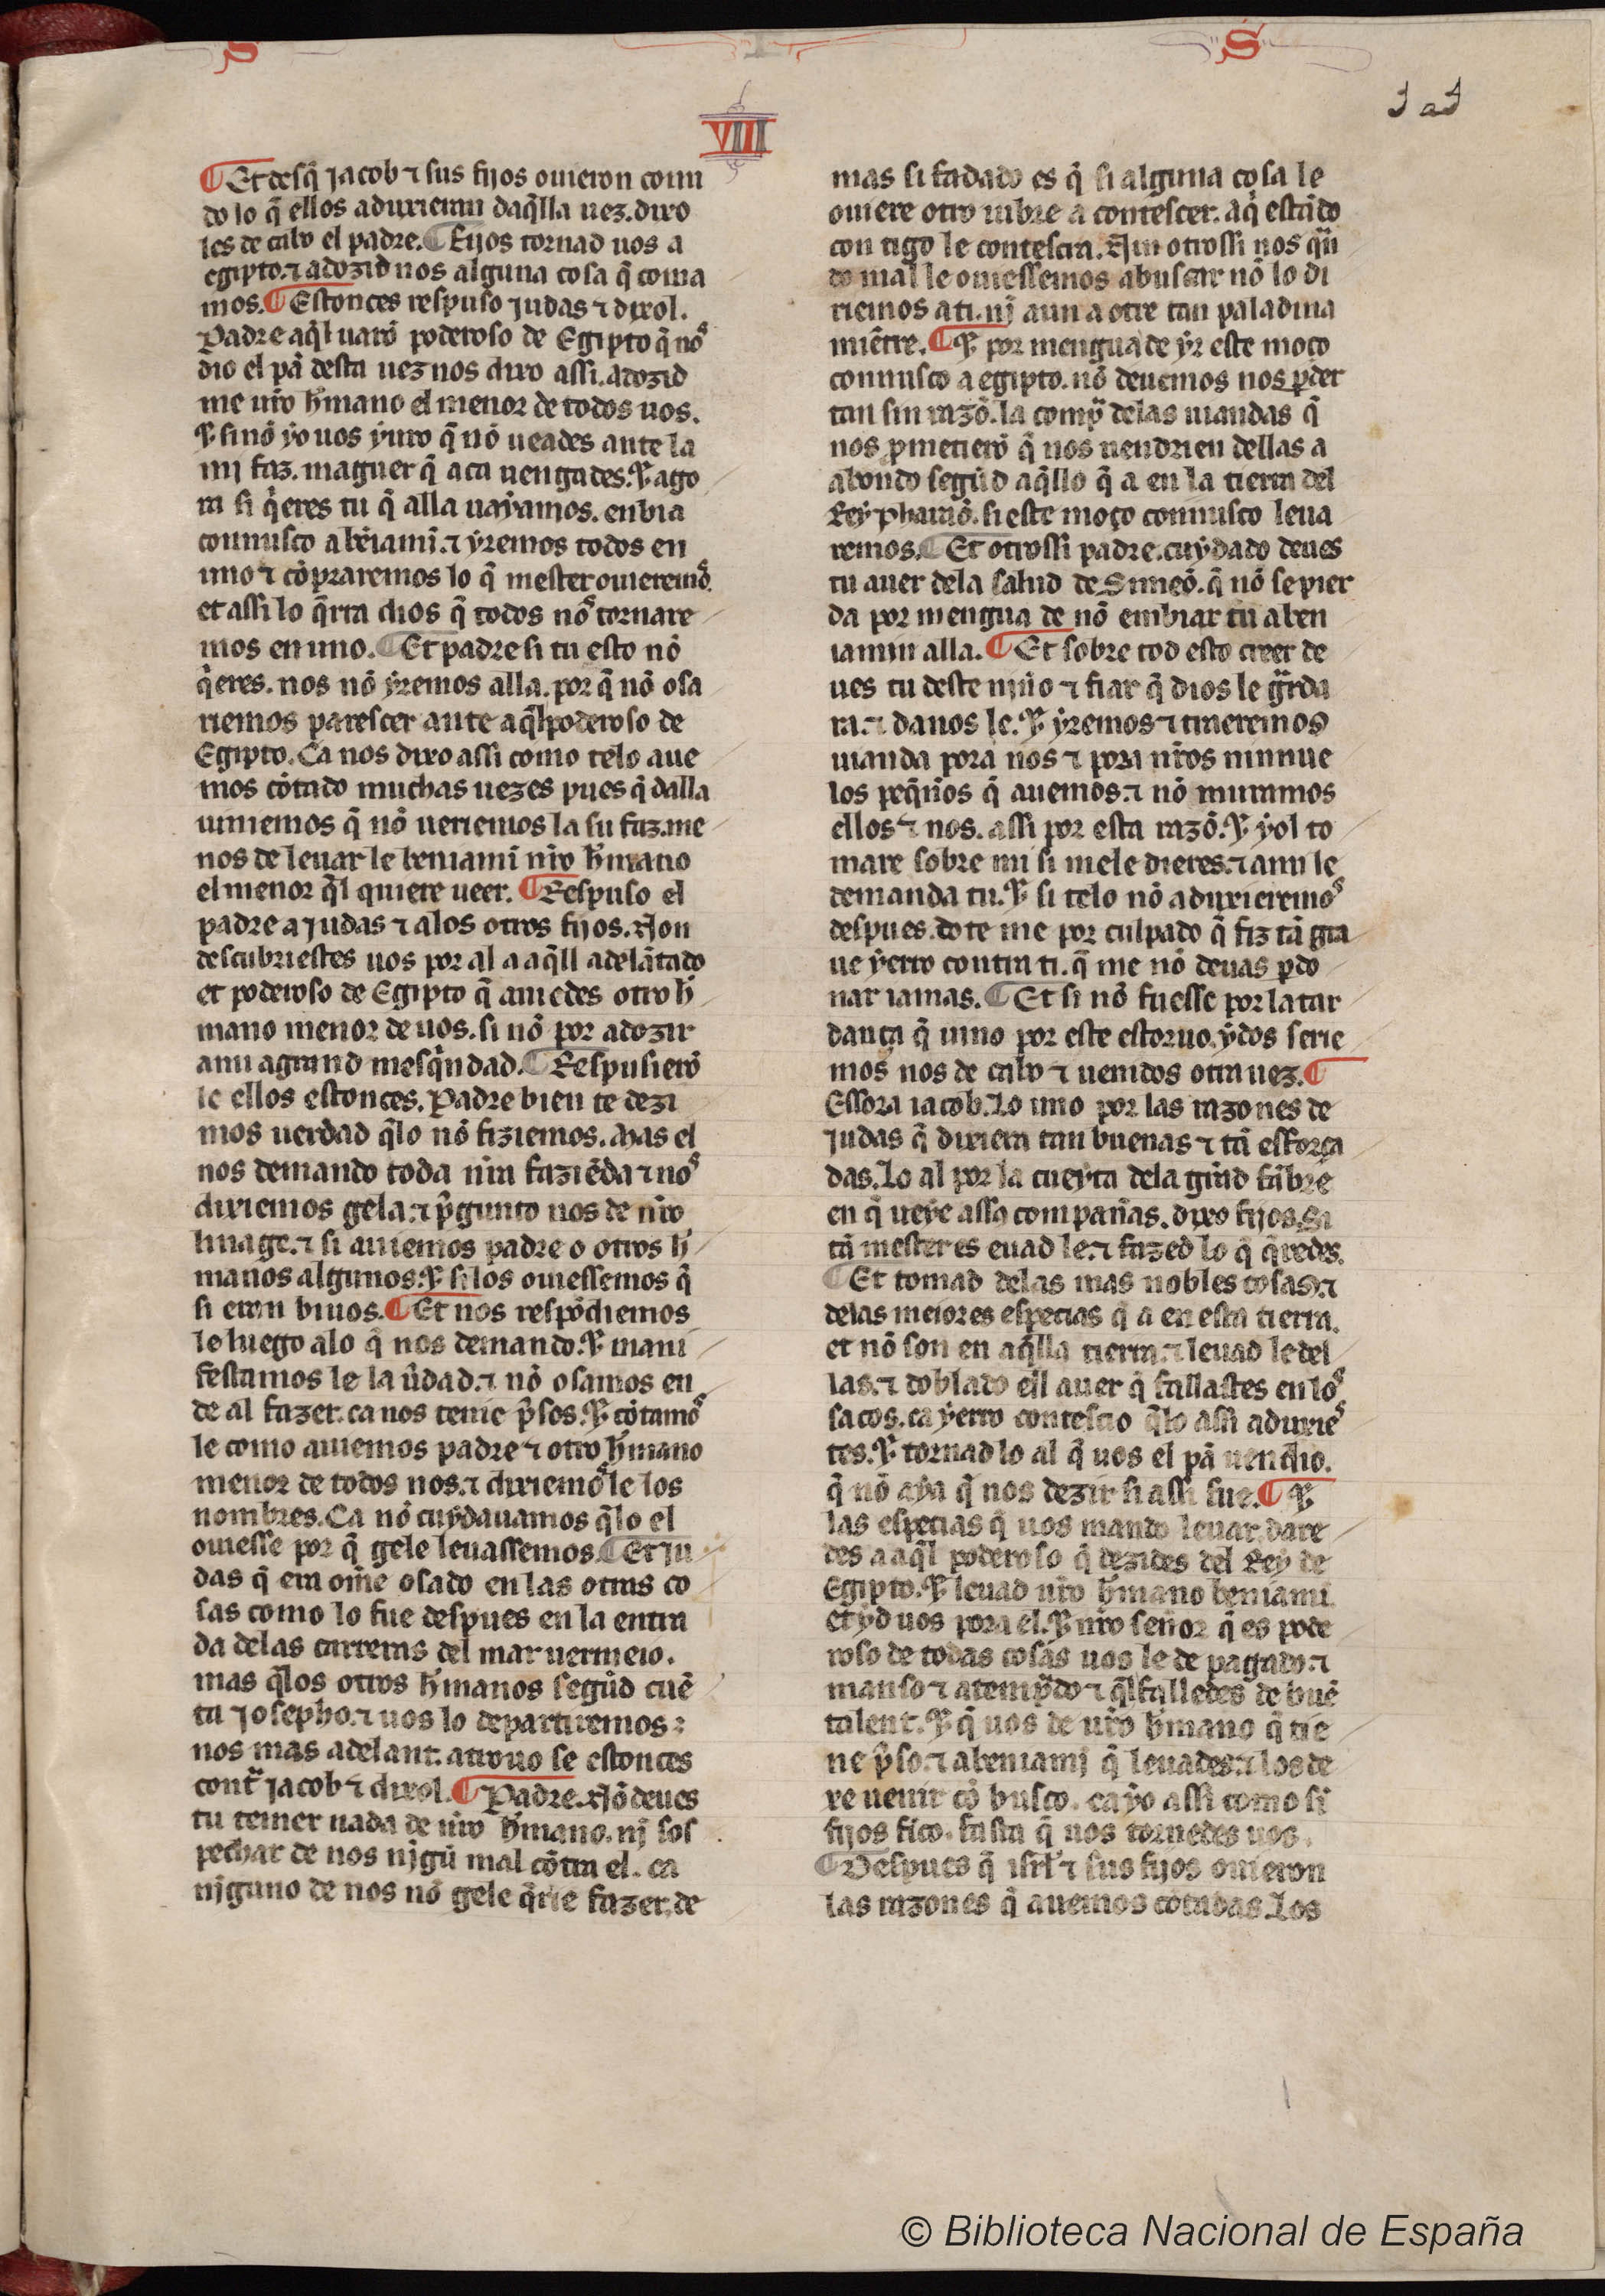 S
S
VIII
¶ Et desq̃ jacob ⁊ sus fijos ouieron comi
do lo q̃ ellos aduxieran daq̃lla uez. dixo
les de cabo el padre. ¶ Fijos tornad uos a
egipto. ⁊ adozid nos alguna cosa q̃ coma
mos. ¶ Estonces respuso judas ⁊ dixol.
Padre aq̃l uarõ poderoso de Egipto q̃ nos
dio el pã desta uez nos dixo assi. adozid
me uřo h̃mano el menor de todos uos.
⁊ sinõ yo uos yuro q̃ nõ ueades ante la
mj faz. maguer q̃ aca uengades. ⁊ ago
ra si q̃eres tu q̃ alla uayamos. enbia
connusco a beniamĩ. ⁊ yremos todos en
uno ⁊ cõpraremos lo q̃ mester ouieremos.
et assi lo q̃rra dios q̃ todos nos tornare
mos en uno. ¶ Et padre si tu esto nõ
q̃eres. nos nõ yremos alla. por q̃ nõ osa
riemos parescer ante aq̃l poderoso de
Egipto. Ca nos dixo assi como telo aue
mos cõtado muchas uezes pues q̃ dalla
uiniemos q̃ nõ ueriemos la su faz. me
nos de leuar le beniamĩ nřo h̃mano
el menor q̃l quiere ueer. ¶ Respuso el
padre a judas ⁊ alos otros fijos. Non
descubriestes uos por al a aq̃ll adelãtado
et poderoso de Egipto q̃ auiedes otro h̃
mano menor de uos. si nõ por adozir
a mi a grand mesq̃ndad. ¶ Respusierõ
le ellos estonces. Padre bien te dezi
mos uerdad q̃lo nõ fiziemos. Mas el
nos demando toda nřa faziẽda ⁊ nos
dixiemos gela. ⁊ p̃gunto nos de nřo
linage. ⁊ si auiemos padre o otros h̃
manos algunos. ⁊ si los ouiessemos q̃
si eran biuos. ¶ Et nos respõdiemos
le luego alo q̃ nos demando. ⁊ mani
festamos le la ũdad. ⁊ nõ osamos en
de al fazer. ca nos tenie p̃sos. ⁊ cõtamos
le como auiemos padre ⁊ otro h̃mano
menor de todos nos. ⁊ dixiemos le los
nombres. Ca nõ cuydauamos q̃lo el
ouiesse por q̃ gele leuassemos. ¶ Et ju
das q̃ era om̃e osado en las otras co
sas como lo fue despues en la entra
da delas carreras del mar uermeio.
mas q̃los otros h̃manos segũd cuẽ
ta josepho. ⁊ uos lo departiremos
nos mas adelant. atrouo se estonces
contra jacob ⁊ dixol. ¶ Padre. Nõ deues
tu temer nada de nřo h̃mano. nj sos
pechar de nos njgũ mal cõtra el. ca
njguno de nos nõ gele q̃rie fazer. de
mas si fadado es q̃ si alguna cosa le
ouiere otro iũbre a contescer. aq̃ estãdo
con tigo le contescra. Aun otrossi nos q̃n
do mal le ouiessemos a buscar nõ lo di
riemos a ti. nj aun a otre tan paladina
miẽtre. ¶ ⁊ por mengua de yr este moço
connusco a egipto. nõ deuemos nos p̱der
tan sin razõ. la compra delas uiandas q̃
nos p̱metierõ q̃ nos uendrien dellas a
abondo segũd aq̃llo q̃ a en la tierra del
Rey pharaõ. si este moço connusco leua
remos. ¶ Et otrossi padre. cuydado deues
tu auer dela salud de Simeõ. q̃ nõ se pier
da por mengua de nõ embiar tu a ben
iamin alla. ¶ Et sobre tod esto creer de
ues tu deste niño ⁊ fiar q̃ dios le gũarda
ra. ⁊ da nos le. ⁊ yremos ⁊ traeremos
uianda pora nos ⁊ pora nřos ninnue
los peq̃ños q̃ auemos. ⁊ nõ murramos
ellos ⁊ nos. assi por esta razõ. ⁊ yol to
mare sobre mi si mele dieres. ⁊ a mi le
demanda tu. ⁊ si telo nõ aduxieremos
despues. dote me por culpado q̃ fiz tã gra
ue yerro contra ti. q̃ me nõ deuas p̱do
nar iamas. ¶ Et si nõ fuesse por la tar
dança q̃ uino por este estoruo. ydos serie
mos nos de cabo ⁊ uenidos otra uez. ¶
Essora iacob. Lo uno por las razones de
judas q̃ dixiera tan buenas ⁊ tã esforça
das. Lo al por la cueyta dela grãd fãbre
en q̃ ueye assu compañas. dixo fijos. Si
tã mester es euad le. ⁊ fazed lo q̃ q̃redes.
¶ Et tomad delas mas nobles cosas. ⁊
delas meiores especias q̃ a en esta tierra.
et nõ son en aq̃lla tierra. ⁊ leuad le del
las. ⁊ doblado ell auer q̃ fallastes en los
sacos. ca yerro contescio q̃lo assi aduxies
tes. ⁊ tornad lo al q̃ uos el pã uendio.
q̃ nõ aya q̃ nos dezir si assi fue. ¶ ⁊
las especias q̃ uos mando leuar. dare
des a aq̃l poderoso q̃ dezides del Rey de
Egipto. ⁊ leuad uřo h̃mano beniamĩ
et yd uos pora el. ⁊ nřo señor q̃ es pode
roso de todas cosas uos le de pagado. ⁊
manso ⁊ atemprado ⁊ q̃l falledes de buẽ
talent. ⁊ q̃ uos de uřo h̃mano q̃ tie
ne p̃so. ⁊ a beniamj q̃ leuades. ⁊ los de
xe uenir cõ busco. ca yo assi como si
fijos fico. fasta q̃ uos tornedes uos.
¶ Despues q̃ isrł ⁊ sus fijos ouieron
las razones q̃ auemos cõtadas. Los
© Biblioteca Nacional de España